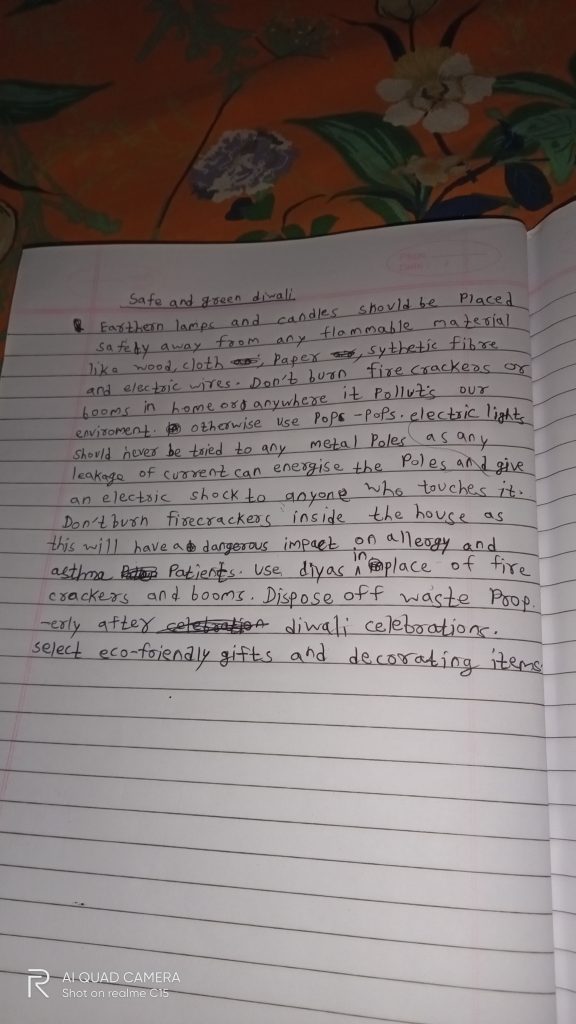 Safe and green diwali
Earthern lamps and candles should be Placed
safety away from any flammable material
like wood, cloth, Paper, sythetic fibre
and electric wires. Don't burn fire crackers or
booms in home or anywhere it Polluts our
enviroment. otherwise use Pops-Pops. electric lights
should never be tried to any metal Poles as any
leakage of current can energise the Poles and give
an electric shock to anyone who touches it.
Don't burn firecrackers inside the house as
this will have a dangerous impact on allergy and
asthma Patients. use diyas in place of fire
crackers and booms. Dispose off waste Prop.
-erly after diwali celebrations.
select eco-friendly gifts and decorating items
AI QUAD CAMERA
Shot on realme C15